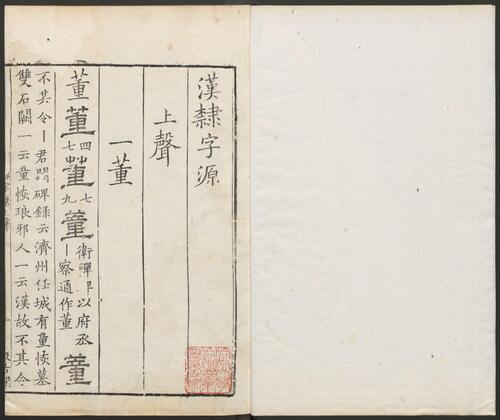 漢隸字源
上聲
一董
董董四七董七九董衛彈以府丞察通作董董
不其令君闕碑錄云濟州任城有童恢墓
雙石闕一云童恢琅邪人一云漢故不其令